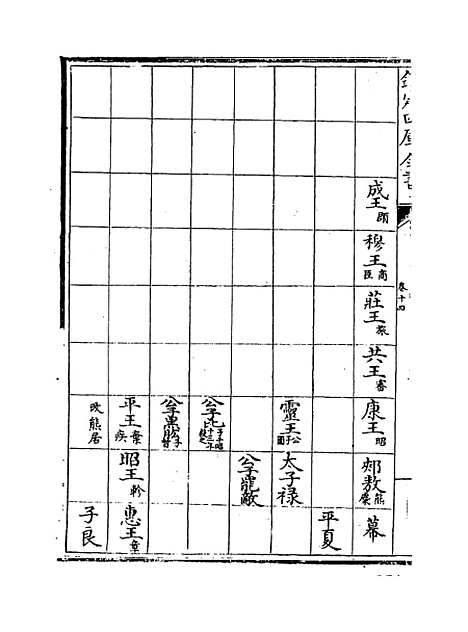 欽定四庫全書
卷十四
成王頵
穆王商臣
莊王旅
共王審
康王昭
郟敖熊麇
幕
平夏
靈王公子圍
太子祿
公子罷敵
公子比
公子黑肱子晳
平王棄疾
昭王軫
惠王章
改熊居
子良